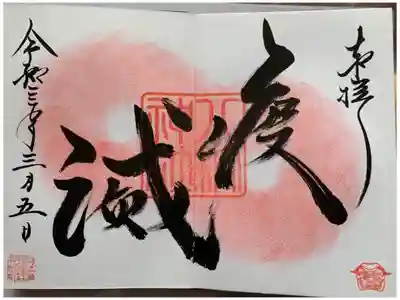 奉拝
疫
滅
令和三年三月五日